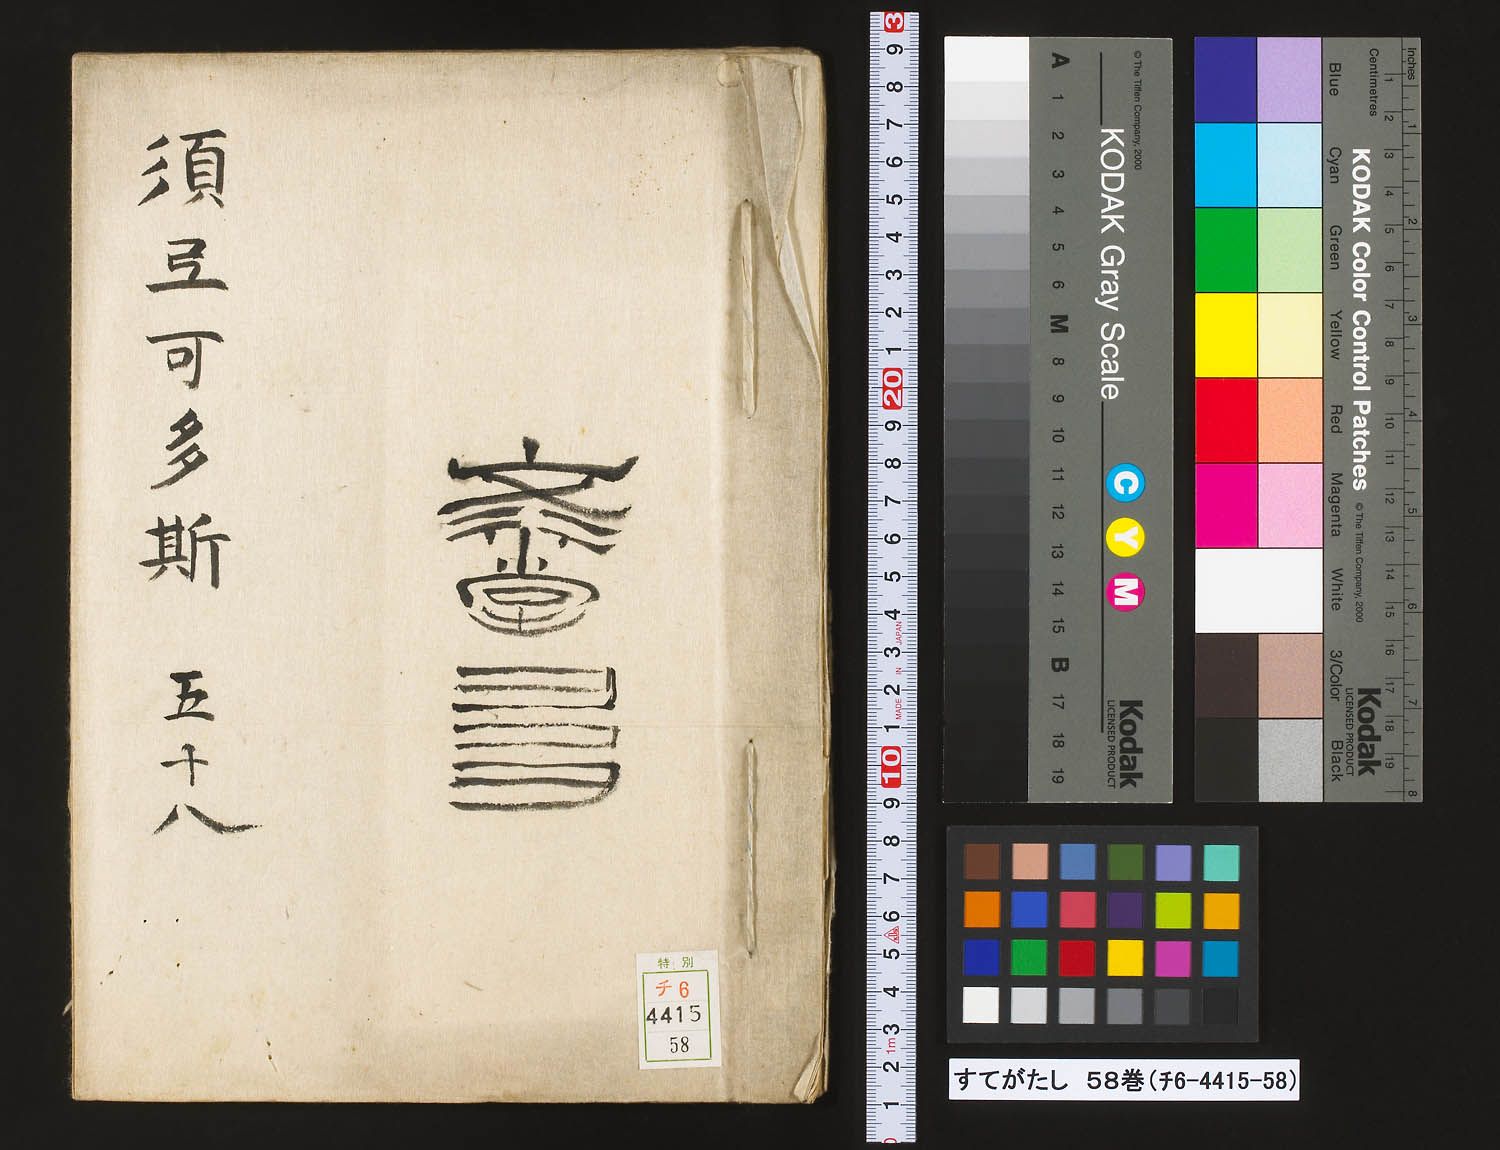 須弖可多斯 五十八
特別
チ6
4415
58
3 9 8 7 6 5 4 3 2 1 20 9 8 7 6 5 4 3 2 1 10 9 8 7 6 5 4 3 2 1 0
MADE IN JAPAN
1m
© The Tiffen Company, 2000
KODAK Gray Scale
C Y M
Kodak
LICENSED PRODUCT
A 1 2 3 4 5 6 M 8 9 10 11 12 13 14 15 B 17 18 19
Inches 1 2 3 4 5 6 7 8
Centimetres 1 2 3 4 5 6 7 8 9 10 11 12 13 14 15 16 17 18 19
KODAK Color Control Patches
© The Tiffen Company, 2000
Kodak
LICENSED PRODUCT
Blue Cyan Green Yellow Red Magenta White 3/Color Black
すてがたし 58巻(チ6-4415-58)